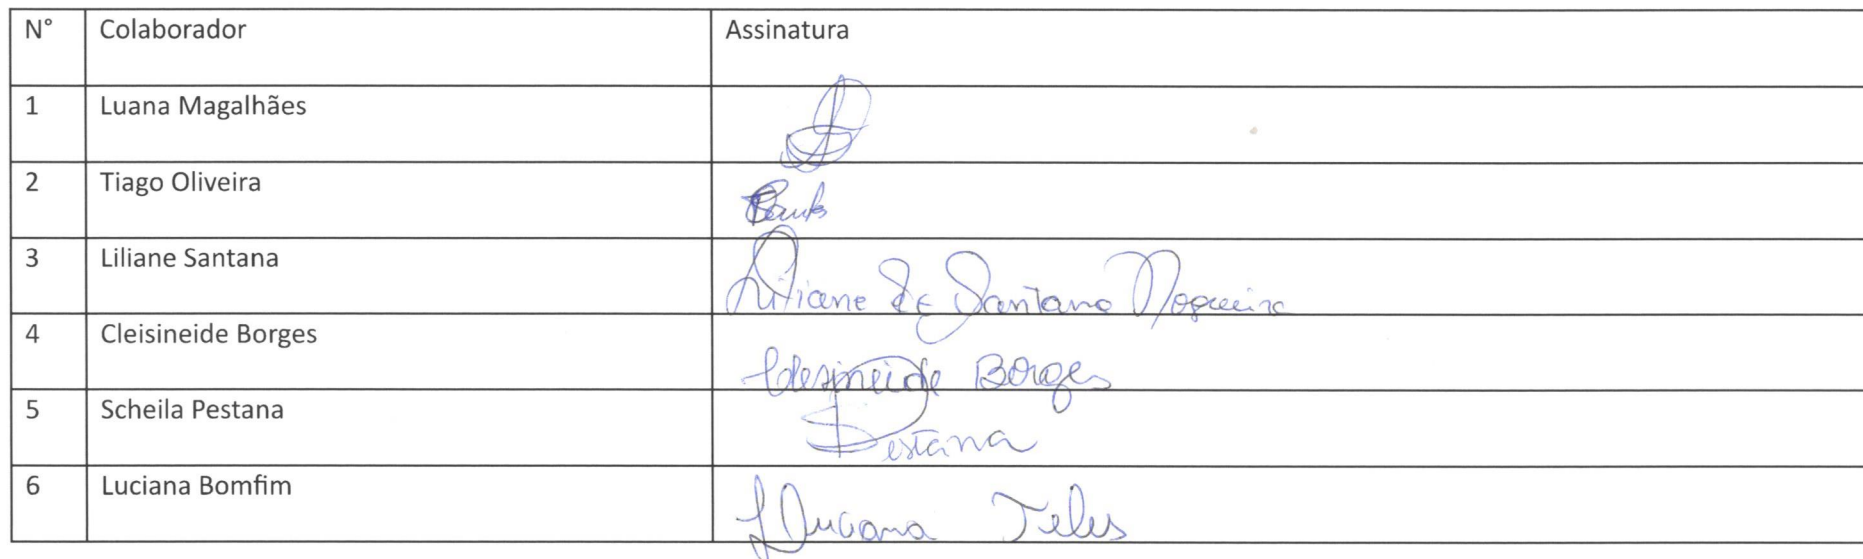 N° Colaborador Assinatura
1 Luana Magalhães
2 Tiago Oliveira
3 Liliane Santana Liliane de Santana Nogueira
4 Cleisineide Borges Cleisineide Borges
5 Scheila Pestana Pestana
6 Luciana Bomfim Luciana Teles